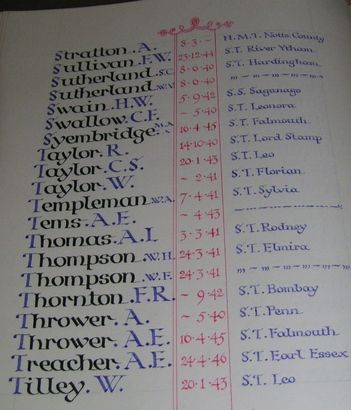 Stratton. A. 8·3·– H.M.T. Notts. County
Sullivan. F.W. 23·12·44 S.T. River Ytham
Sutherland. S.C. 8·6·40 S.T. Hardingham
Sutherland. W.V. 8·6·40 " — " — " — "
Swain. H.W. 5·9·42 S.S. Saganago
Swallow. C.F. ~ 5·40 S.T. Leonora
Syembridge. M.A. 16·4·45 S.T. Falmouth
Taylor. R. 14·10·40 S.T. Lord Stamp
Taylor. C.S. 20·1·43 S.T. Leo
Taylor. W. ~ 2·41 S.T. Florian
Templeman. W.A. 7·4·41 S.T. Sylvia
Tems. A.E. ~ 4·43 ————
Thomas. A.L 3·3·41 S.T. Rodney
Thompson. W.H. 24·3·41 S.T. Elmira
Thompson. W.F. 24·3·41 " — " — " — "
Thornton. F.R. ~ 9·42 S.T. Bombay
Thrower. A. ~ 5·40 S.T. Penn
Thrower. A.E. 16·4·45 S.T. Falmouth
Treacher. A.E. 24·4·46 S.T. Earl Essex
Tilley. W. 20·1·43 S.T. Leo